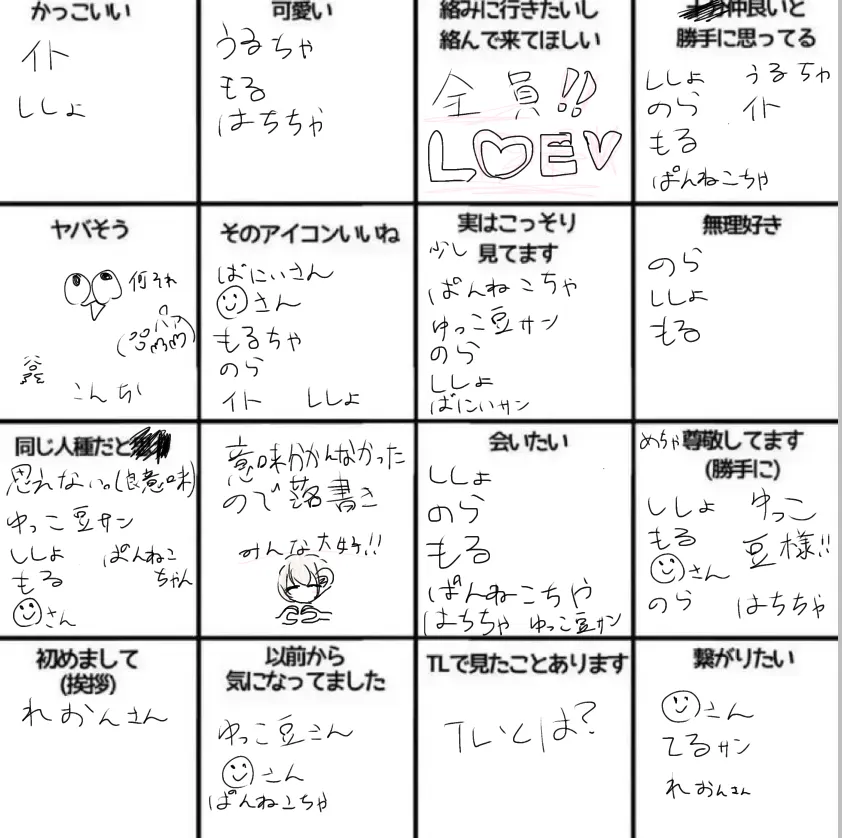 かっこいい
イト
ししょ
可愛い
うるちゃ
もる
はちちゃ
絡みに行きたいし
絡んで来てほしい
全員!!
LOEV
仲良いと
勝手に思ってる
ししょ うるちゃ
のら イト
もる
ぱんねこちゃ
ヤバそう
何それ
こんちか
そのアイコンいいね
ばにぃさん
さん
もるちゃ
のら
イト ししょ
実はこっそり
少し 見てます
ぱんねこちゃ
ゆっこ豆サン
のら
ししょ
ばにぃサン
無理好き
のら
ししょ
もる
同じ人種だと
思えない。(良意味)
ゆっこ豆サン
ししょ ぱんねこ
もる ちゃん
さん
意味分かんなかった
ので落書き
みんな大好!!
会いたい
ししょ
のら
もる
ぱんねこちゃ
はちちゃ ゆっこ豆サン
めちゃ尊敬してます
(勝手に)
ししょ ゆっこ
もる 豆様!!
さん
のら はちちゃ
初めまして
(挨拶)
れおんさん
以前から
気になってました
ゆっこ豆さん
さん
ぱんねこちゃ
TLで見たことあります
TLとは?
繋がりたい
さん
てるサン
れおんさん